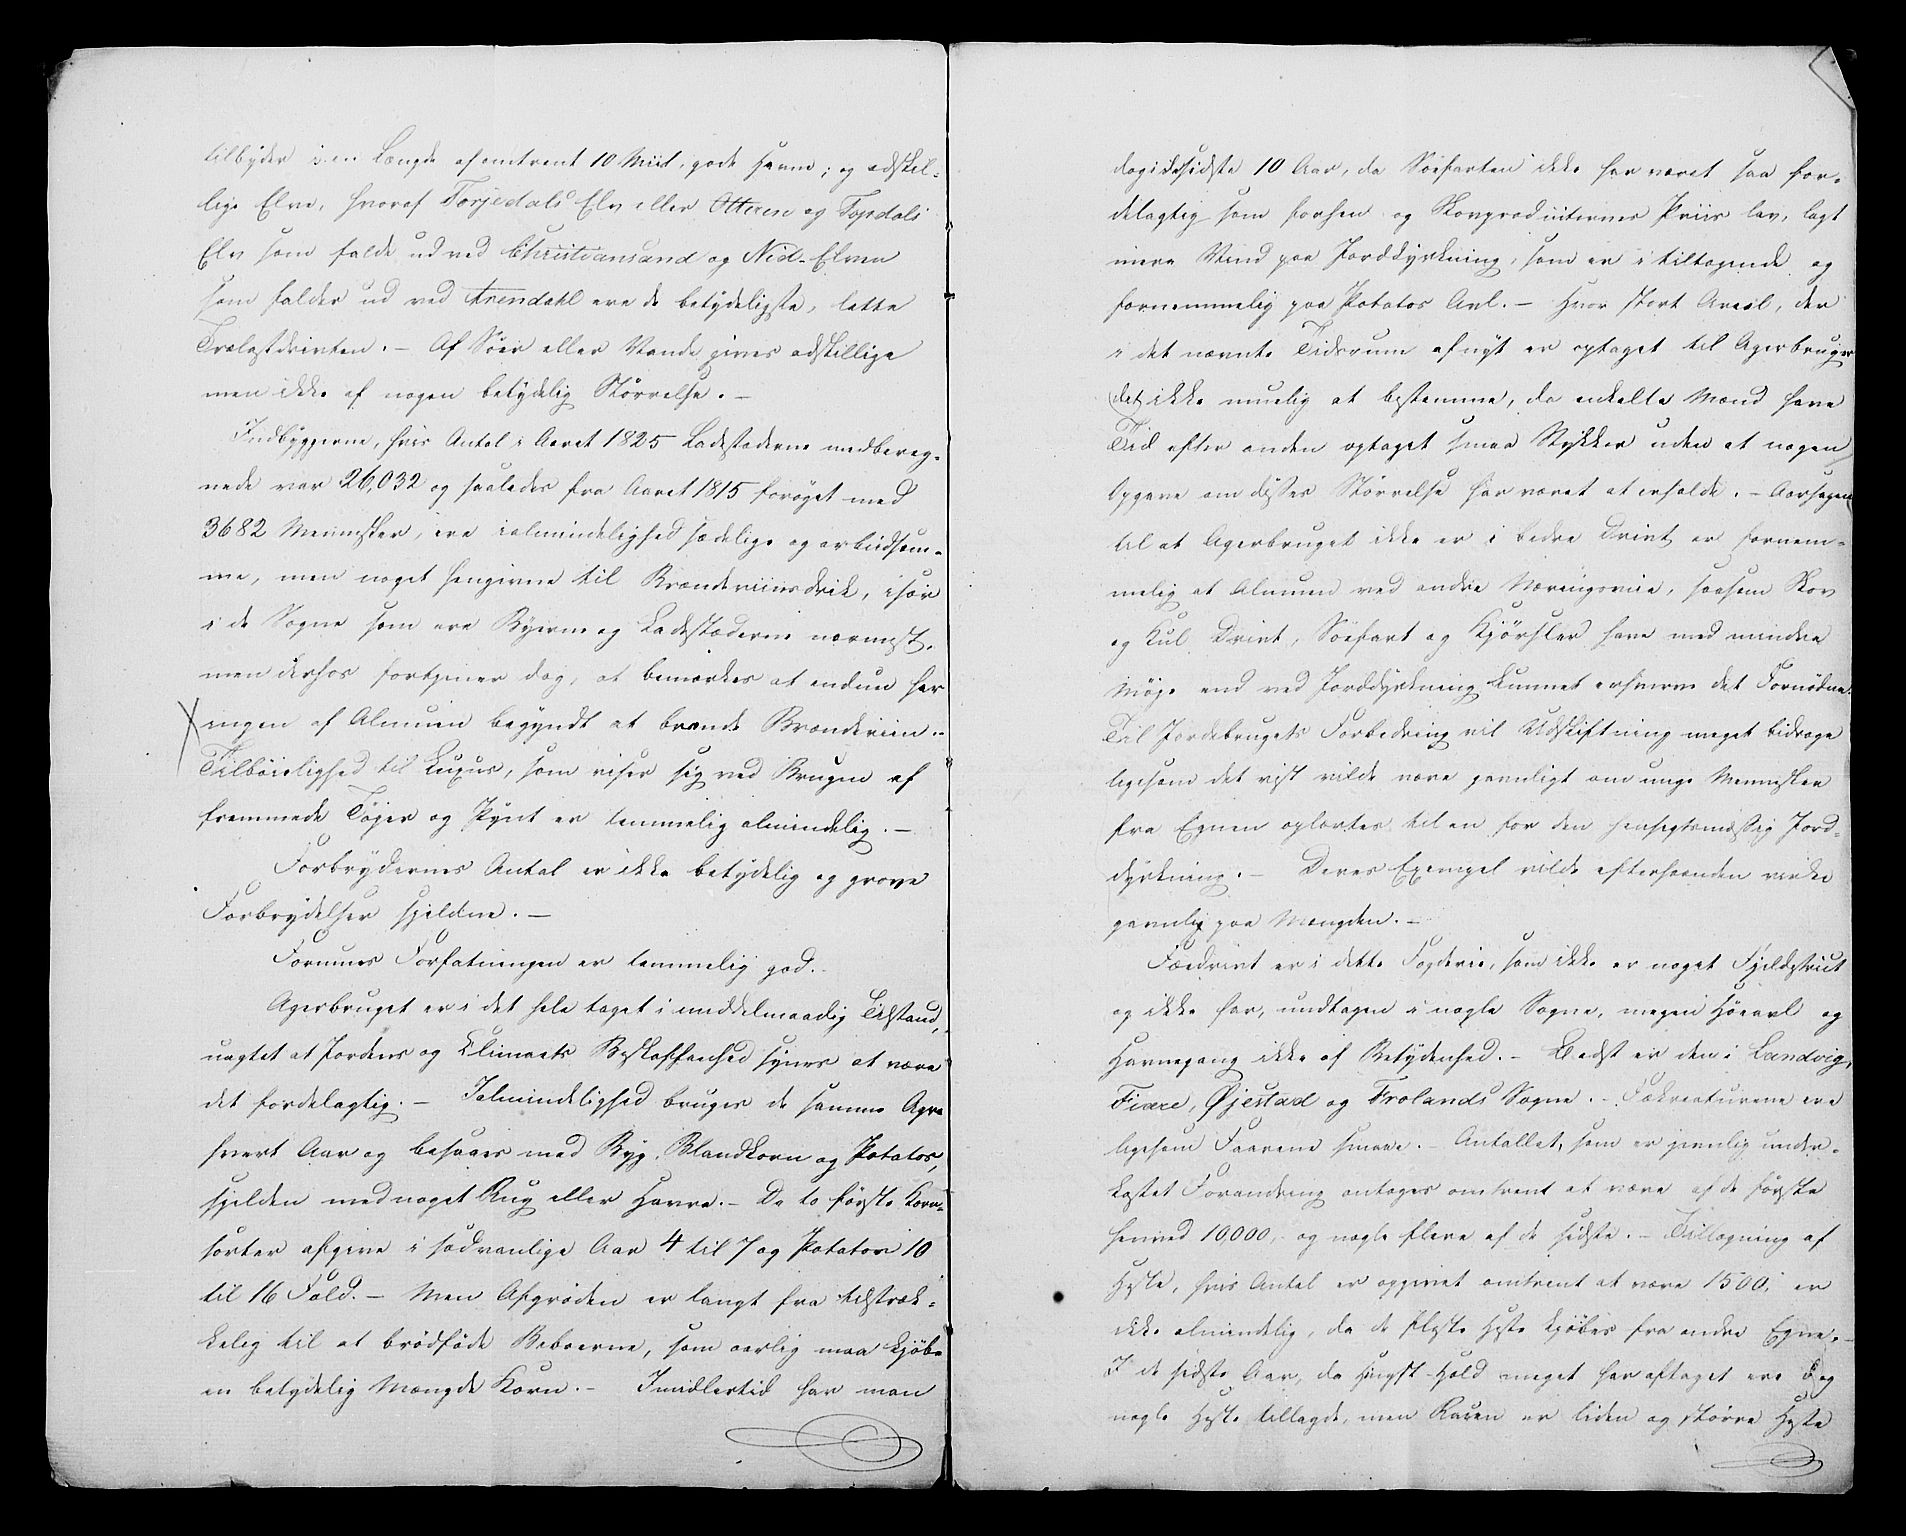 tilbyder i en Længde af omtrent 10 Miil, gode Havne; og adskil-
lige Elve, hvoraf Torjedals Elv eller Otteren og Topdals
Elv som falde ud ved Christiansand og Nid-Elven
som falder ud ved Arendahl ere de betydeligste, lette
Trælastdriften. - Af Söer eller Vande gives adskillige
men ikke af nogen betydelig Störrelse. -
Indbyggerne, hvis Antal i Aaret 1825 Ladestæderne medbereg-
nede var 26,032 og saaledes fra Aaret 1815 forøget med
3682 Mennisker, ere i almindelighed sædelige og arbeidsom-
me, men noget hengivne til Brændeviinsdrik, især
i de Sogne som ere Byerne og Ladestæderne nærmest,
men derhos fortjener dog, at bemærkes at endnu har
ingen af Almuen begyndt at brænde Brændeviin. -
Tilböielighed til Luxus, som viser sig ved Brugen af
fremmede Töjer og Pynt er temmelig almindelig. -
Forbrydernes Antal er ikke betydelig og grove
Forbrydelser sjeldne. -
Formues Forfatningen er temmelig god. -
Agerbruget er i det hele taget i middelmaadig Tilstand,
uagtet at Jordens og Climaets Beskaffenhed synes at være
det fordelagtig. - I almindelighed bruges de samme Agre
hvert Aar og besaaes med Byg, Blandkorn og Potatos,
sjelden med noget Rug eller Havre. - De to første Korn-
sorter afgive i sædvanlige Aar 4 til 7 og Potatos 10
til 16 Fold. - Men Afgröden er langt fra tilstræk-
kelig til at brödföde Beboerne, som aarlig maa kjöbe
en betydelig Mængde Korn. - Imidlertid har man
dog i de sidste 10 Aar, da Söefarten ikke har været saa for-
delagtig som forhen og Skovproducternes Priis lav, lagt
mere Vind paa Jorddyrkning, som er i tiltagende og
fornemmelig paa Potatos Avl. - Hvor stort Areal, der
i det nævnte Tidsrum af nyt er optaget til Agerbrug er
det ikke muelig at bestemme, da enkelte Mænd have
Tid efter anden optaget smaa Stykker uden at nogen
Opgave om disses Störrelse har været at erholde. - Aarsagen
til at Agerbruget ikke er i bedre Drivt er fornem-
melig at Almuen ved andre Næringsveie, saasom Skov
og Kul Drivt, Söefart og Kjörsler have med mindre
Möje end ved Jorddyrkning kunnet erhverve det Fornödne.
Til Jordebrugets Forbedring vil Udskiftning meget bidrage
ligesom det vist vilde være gavnligt om unge Mennisker
fra Egnen oplærtes til en for den hensigtsmæssig Jord-
dyrkning. - Deres Exempel vilde efterhaanden virke
gavnlig paa Mængden. -
Fædrivt er i dette Fogderie, som ikke er noget Fjelddistrict
og ikke har, undtagen i nogle Sogne, megen Höeavl og
Havnegang ikke af Betydenhed. - Bedst er den i Landvig,
Fiære, Øjestad og Frolands Sogne. - Fækreaturene ere
ligesom Faarene smaae. - Antallet, som er jevnlig under-
kastet Forandring antages omtrent at være af de første
henved 10,000, og nogle flere af de sidste. - Tillægning af
Heste, hvis Antal er opgivet omtrent at være 1500, er
ikke almindelig, da de fleste Heste kjöbes fra andre Egne. -
I de sidste Aar, da Hingst-Hold meget har aftaget ere dog
nogle Heste tillagde, men Racen er liden og större Heste